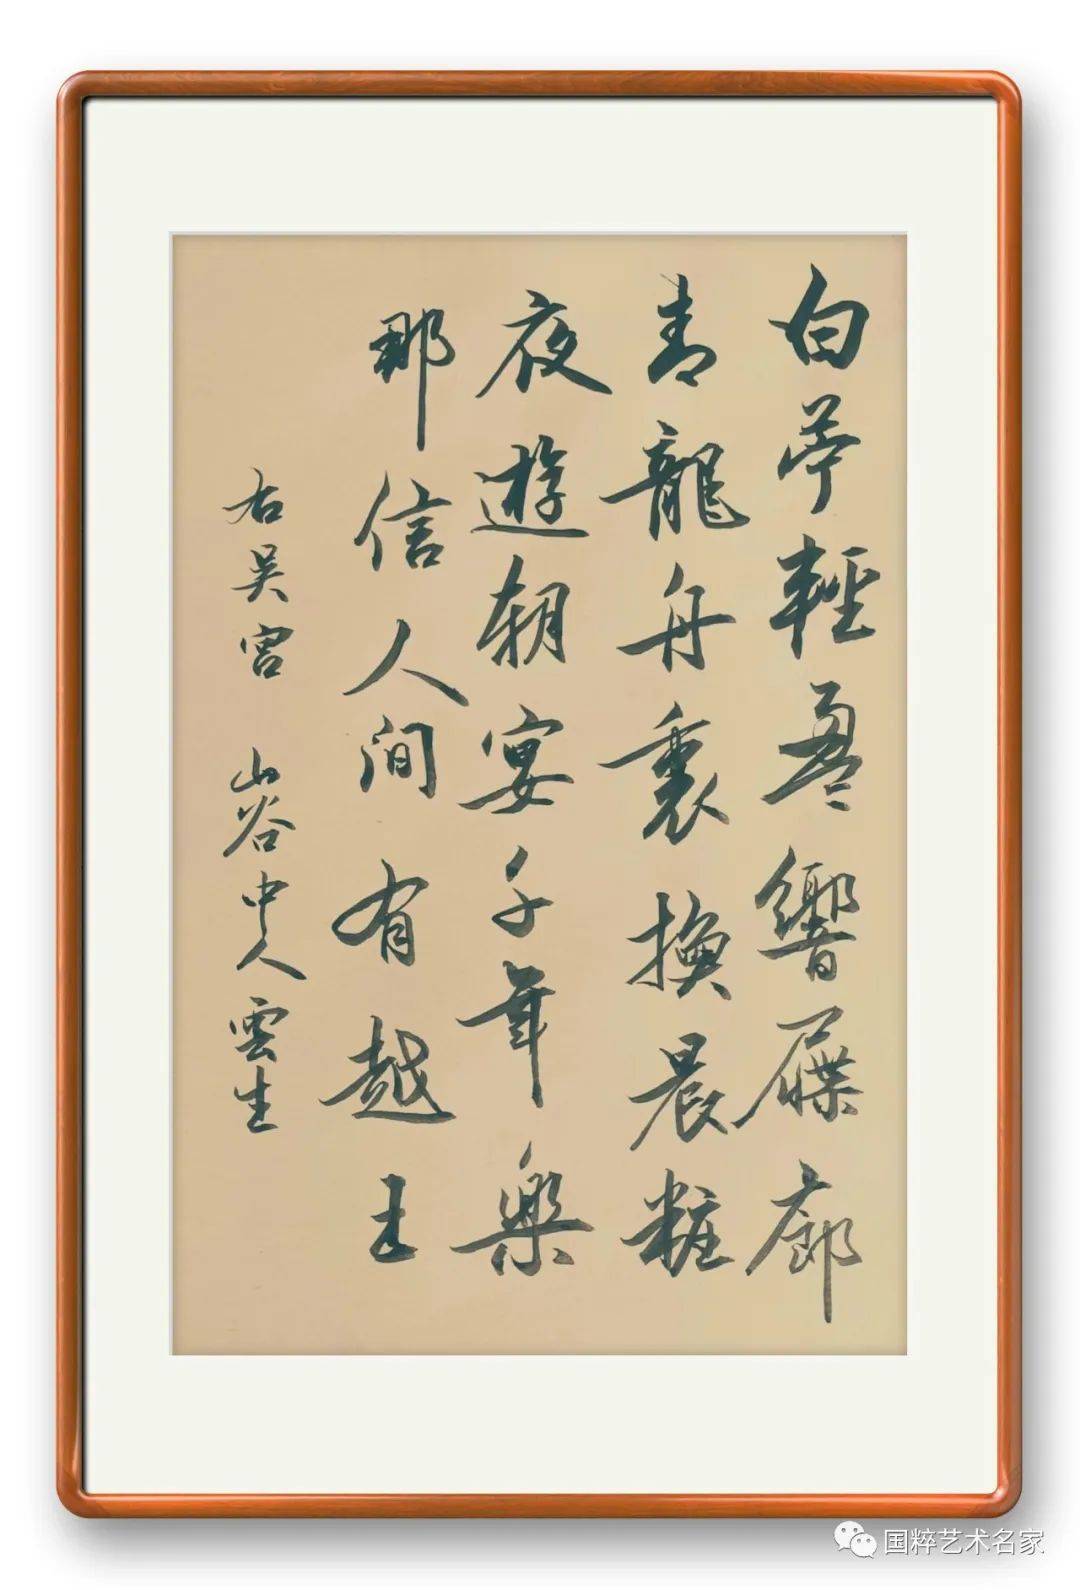 白苧輕盈響屧廊
青龍舟裏換晨粧
夜遊朝宴千年樂
那信人間有越王
右吳宮 山谷中人雲生
国粹艺术名家